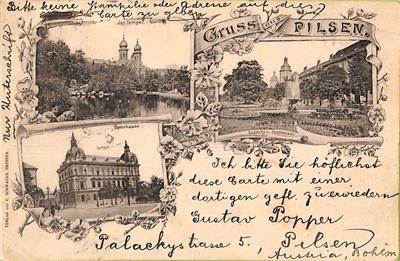 Bitte keine Stampilie oder adresse auf diese
Carte zu geben
Nur Unterschrift
Gruss aus PILSEN.
Isr. Tempel.
Sparkasse.
VERLAG von C. SCHWAGER, DRESDEN.
Ich bitte Sie höflichst
diese Carte mit einer
dortigen gefl. zu erwiedern
Gustav Popper
Palackystrasse 5, Pilsen
Austria, Bohem